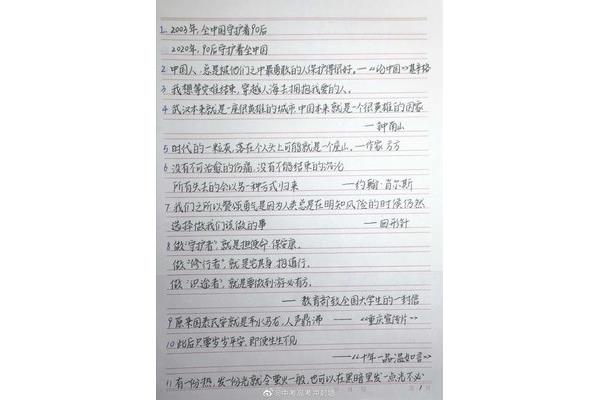 1. 2003年,全中国守护着90后
2020年,90后守护着全中国
2 中国人,总是被他们之中最勇敢的人保护得很好。——《论中国》基辛格
3 我想等灾难结束,穿越人海去拥抱我爱的人。
4 武汉本来就是一座很英雄的城市 中国本来就是一个很英雄的国家
—钟南山
5 时代的一粒灰,落在个人头上可能就是一座山。—作家 方方
6 没有不可治愈的伤痛,没有不能结束的沉沦
所有失去的会以另一种方式归来 ——约翰·肖尔斯
7 我们之所以赞颂勇气是因为人类总是在明知风险的时候仍然
选择做我们该做的事 ——回形针
8 做“守护者”,就是担使命 保安康,
做“修行者”,就是宅其身,担道行,
做“识途者”,就是要做到游必有方。
—— 教育部致全国大学生的一封信
9 原来国泰民安就是车水马龙,人声鼎沸 ——《重庆宣传片》
10 此后只要岁岁平安,即使生生不见
——《十年一品温如言》
11 有一份热,发一份光就令萤火一般,也可以在黑暗里发一点光不必
@中考高考冲刺墙